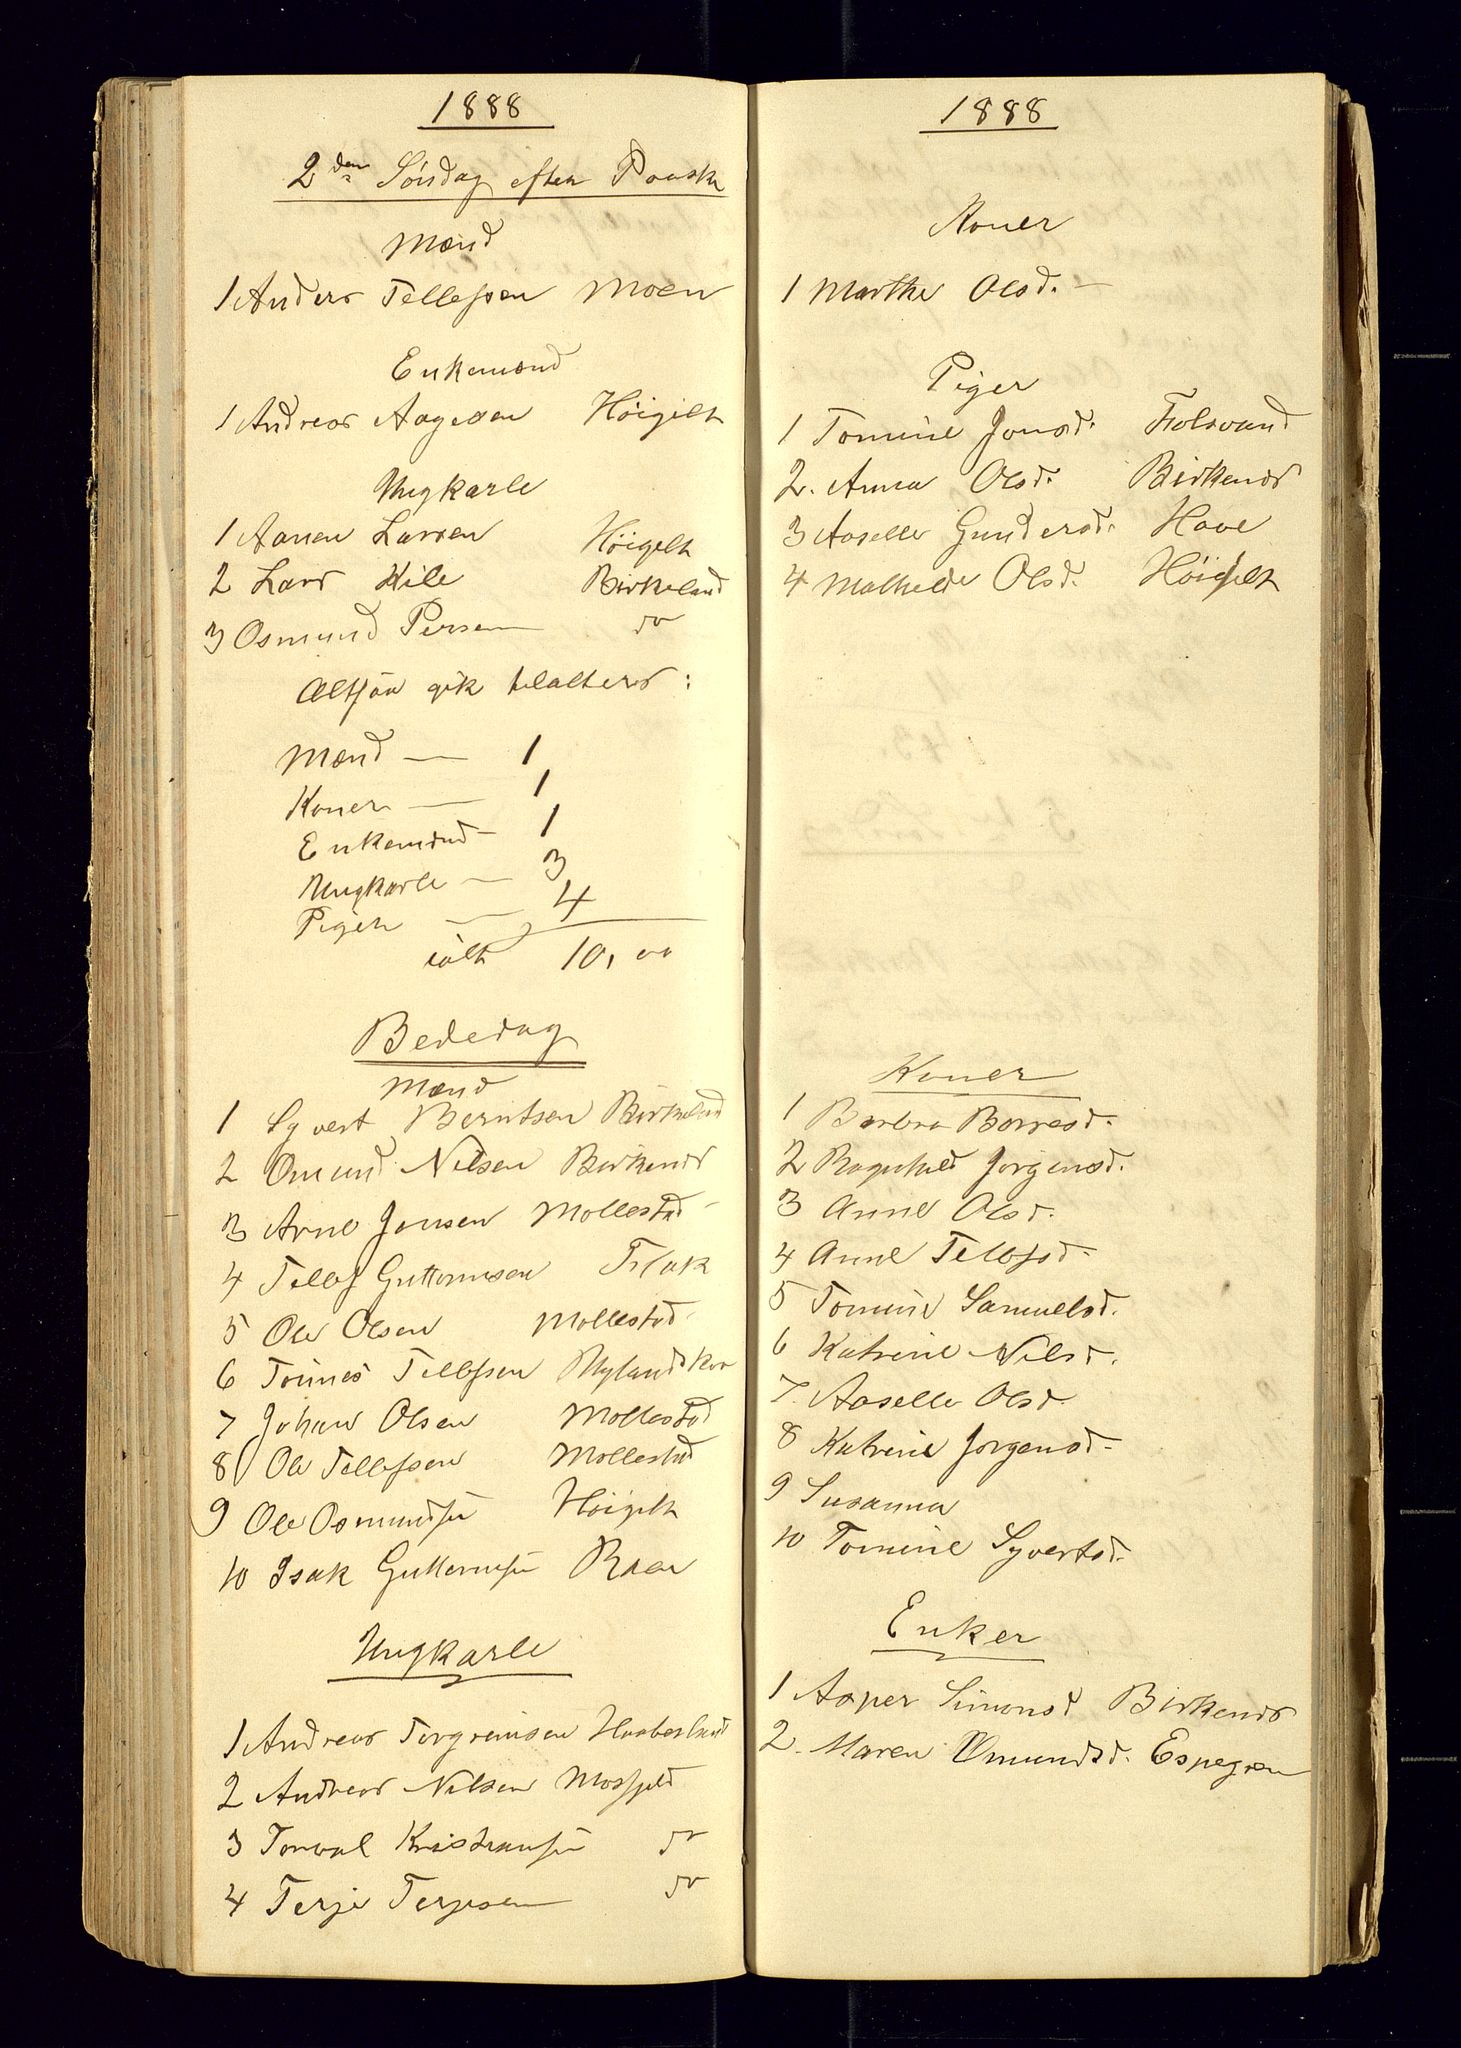 1888
2den Söndag efter Paaske
Mænd
1 Anders Tellefsen Moen
Enkemænd
1 Andreas Aagesen Höigilt
Ungkarle
1 Aanen Larsen Höigilt
2 Lars Kile Birkeland
3 Osmund Persen do
Altsaa gik tilalters:
Mænd — 1
Koner — 1
Enkemænd — 1
Ungkarle — 3
Piger — 4
ialt 10,
Bededag
Mænd
1 Syvert Berntsen Birkeland
2 Omund Nilsen Birkenes
3 Arne Jensen Mollestad
4 Tellef Guttormsen
5 Ole Olsen Mollestad
6 Tönnes Tellefsen
7 Johan Olsen Mollestad
8 Ole Tellefsen Mollestad
9 Ole Osmundsen Höigilt
10 Isak Guttormsen
Ungkarle
1 Andreas Torgrimsen Haabesland
2 Andreas Nilsen Mosfjeld
3 Torval Kristiansen do
4 Terje Terjesen do
1888
Koner
1 Marthe Olsd. —
Piger
1 Tomine Jonsd.
2. Anna Olsd. Birkenes
3 Aaselle Gundersd. Hove
4 Mathilde Olsd. Höigilt
Koner
1 Barbra Borresd.
2 Ragnhild Jörgensd.
3 Anne Olsd.
4 Anne Tellefsd.
5 Tomine Samuelsd.
6 Katrine Nilsd.
7. Aaselle Olsd.
8 Katrine Jorgensd.
9 Susanna
10 Tomine Syvertsd.
Enker
1 Asper Simonsd Birkenes
2. Maren Omundsd. Espegren